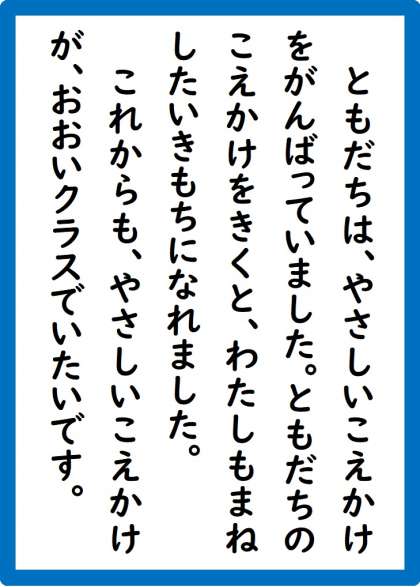 ともだちは、やさしいこえかけ
をがんばっていました。ともだちの
こえかけをきくと、わたしもまね
したいきもちになれました。
これからも、やさしいこえかけ
が、おおいクラスでいたいです。